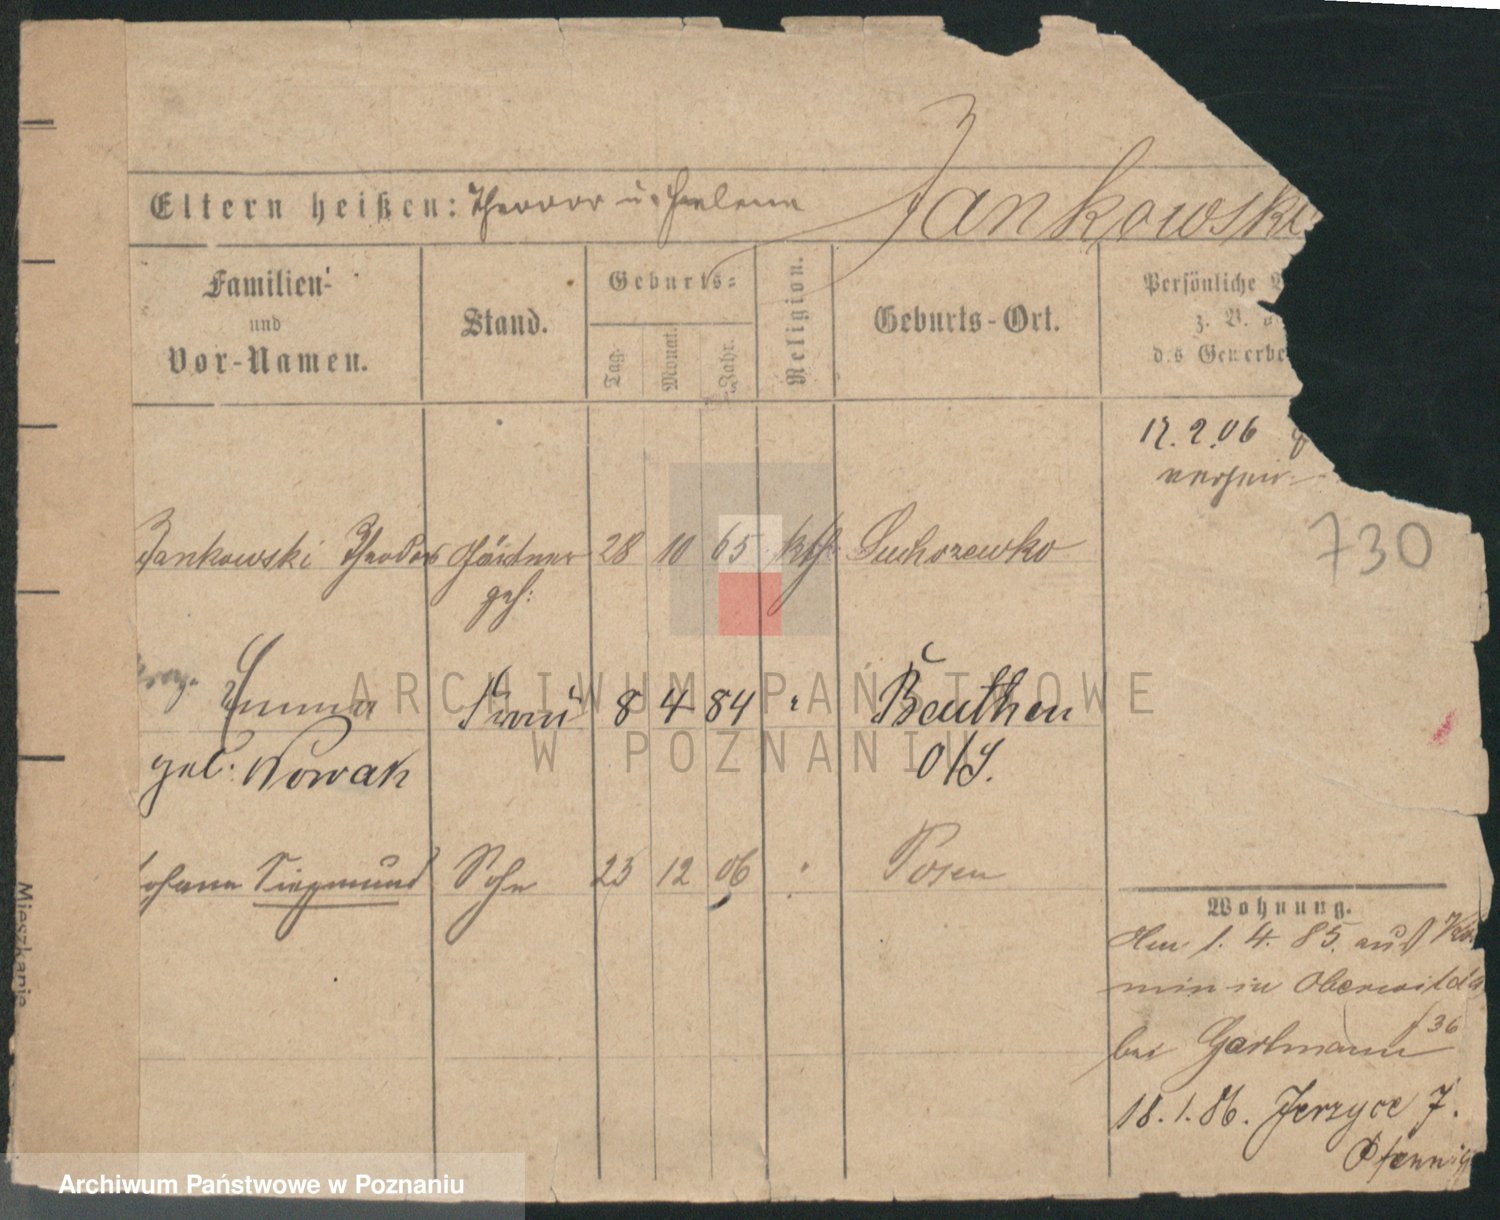 Jankowski
Eltern heißen: Theodor u. Helena
Familien-
und
Vor-Namen.
Stand.
Geburts-
Tag.
Monat.
Jahr.
Religion.
Geburts-Ort.
Persönliche
z. B.
d.s Gewerbe
12.2.06
730
Jankowski Theodor Gärtner 28 10 65 kth. Suchorzewko
geh:
Emma Frau 8 4 84 " Beuthen
geb. Nowak O/S.
Johann Siegmund Sohn 23 12 06 " Posen
Wohnung.
1. 4. 85. aus
min in Oberwilda
36
bei Gartmann
18.1.86. Jerzyce 7.
Pfennig
Mieszkanie
ARCHIWUM PAŃSTWOWE
W POZNANIU
Archiwum Państwowe w Poznaniu